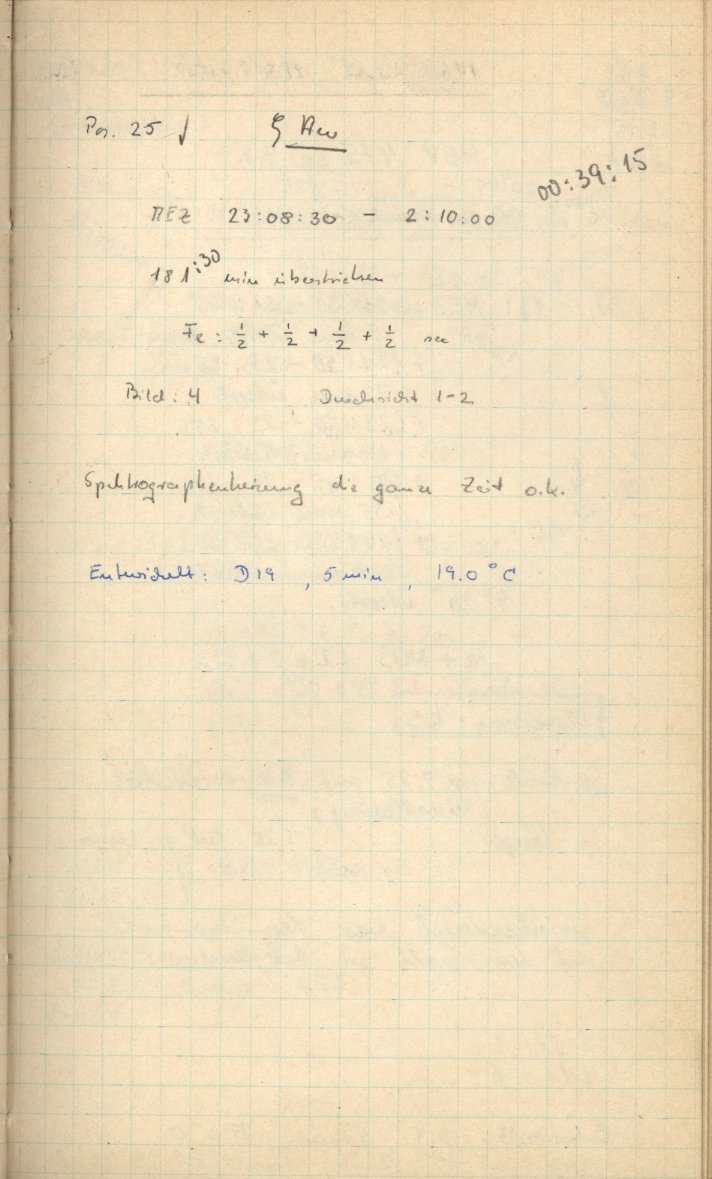 Pos. 25 √ ζ Aur
00:39:15
MEZ 23:08:30 - 2:10:00
181:30 min überstrichen
Fe: 1/2 + 1/2 + 1/2 + 1/2 sec
Bild: 4 Durchsicht 1-2
Spektrographenheizung die ganze Zeit o.k.
Entwickelt: D19, 5 min, 19.0 °C